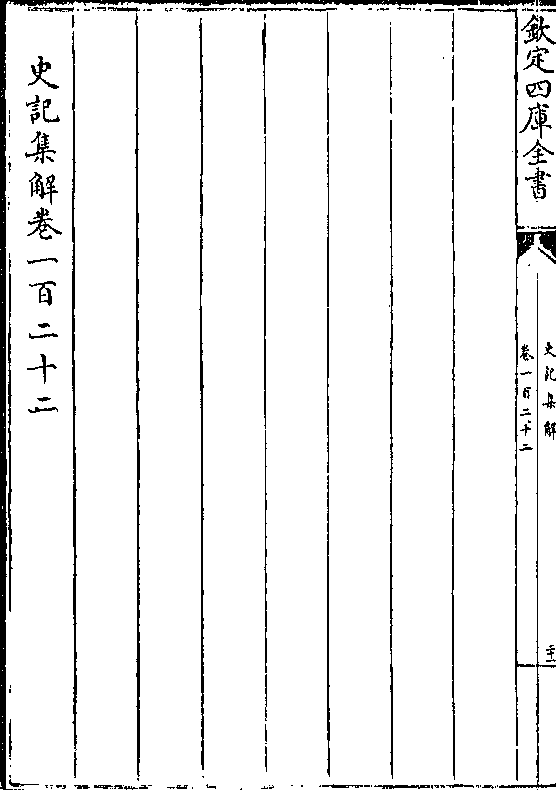 欽定四庫全書
史記集解
卷一百二十二
史記集解卷一百二十二